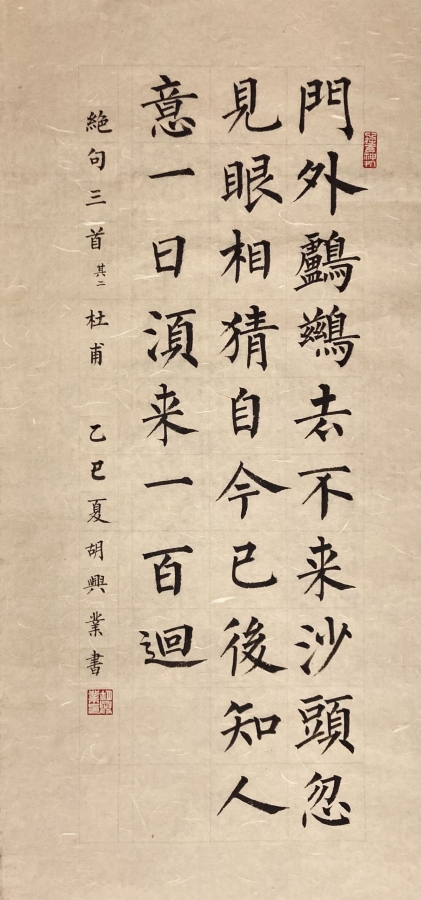 門外鸕鷀去不来沙頭忽
見眼相猜自今已後知人
意一日湏来一百迴
絶句三首 其二 杜甫 乙巳夏胡興業書